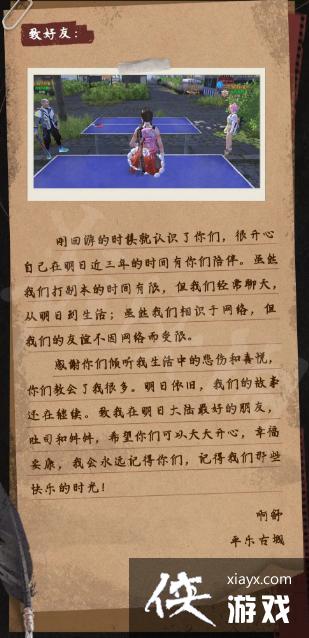 致好友：
刚回游的时候就认识了你们，很开心
自己在明日近三年的时间有你们陪伴。虽然
我们打副本的时间有限，但我们经常聊天，
从明日到生活；虽然我们相识于网络，但
我们的友谊不因网络而受限。
感谢你们倾听我生活中的悲伤和喜悦，
你们教会了我很多。明日依旧，我们的故事
还在继续。致我在明日大陆最好的朋友，
吐司和蚪蚪，希望你们可以天天开心，幸福
安康，我会永远记得你们，记得我们那些
快乐的时光！
啊舒
平乐古城
xiayx.com
侠游戏